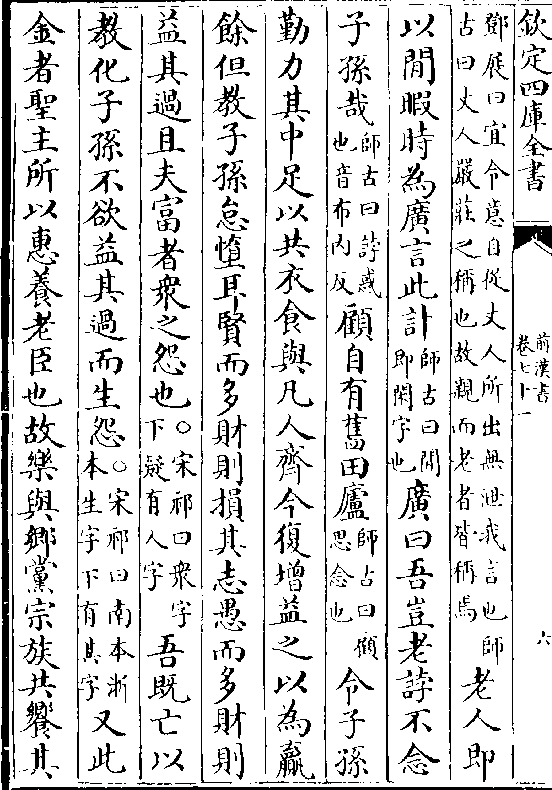 欽定四庫全書
前漢書
卷七十一
六
鄧展曰宜令意自從丈人所出無泄我言也師
古曰丈人嚴莊之稱也故親而老者皆稱焉
老人即
以閒暇時為廣言此計
師古曰閒
即閑字也
廣曰吾豈老誖不念
子孫哉
師古曰誖惑
也音布內反
顧自有舊田廬
師古曰顧
思念也
令子孫
勤力其中足以共衣食與凡人齊今復增益之以為贏
餘但教子孫怠墮耳賢而多財則損其志愚而多財則
益其過且夫富者衆之怨也
○宋祁曰衆字
下疑有人字
吾既亡以
教化子孫不欲益其過而生怨
○宋祁曰南本浙
本生字下有其字
又此
金者聖主所以惠養老臣也故樂與鄉黨宗族共饗其